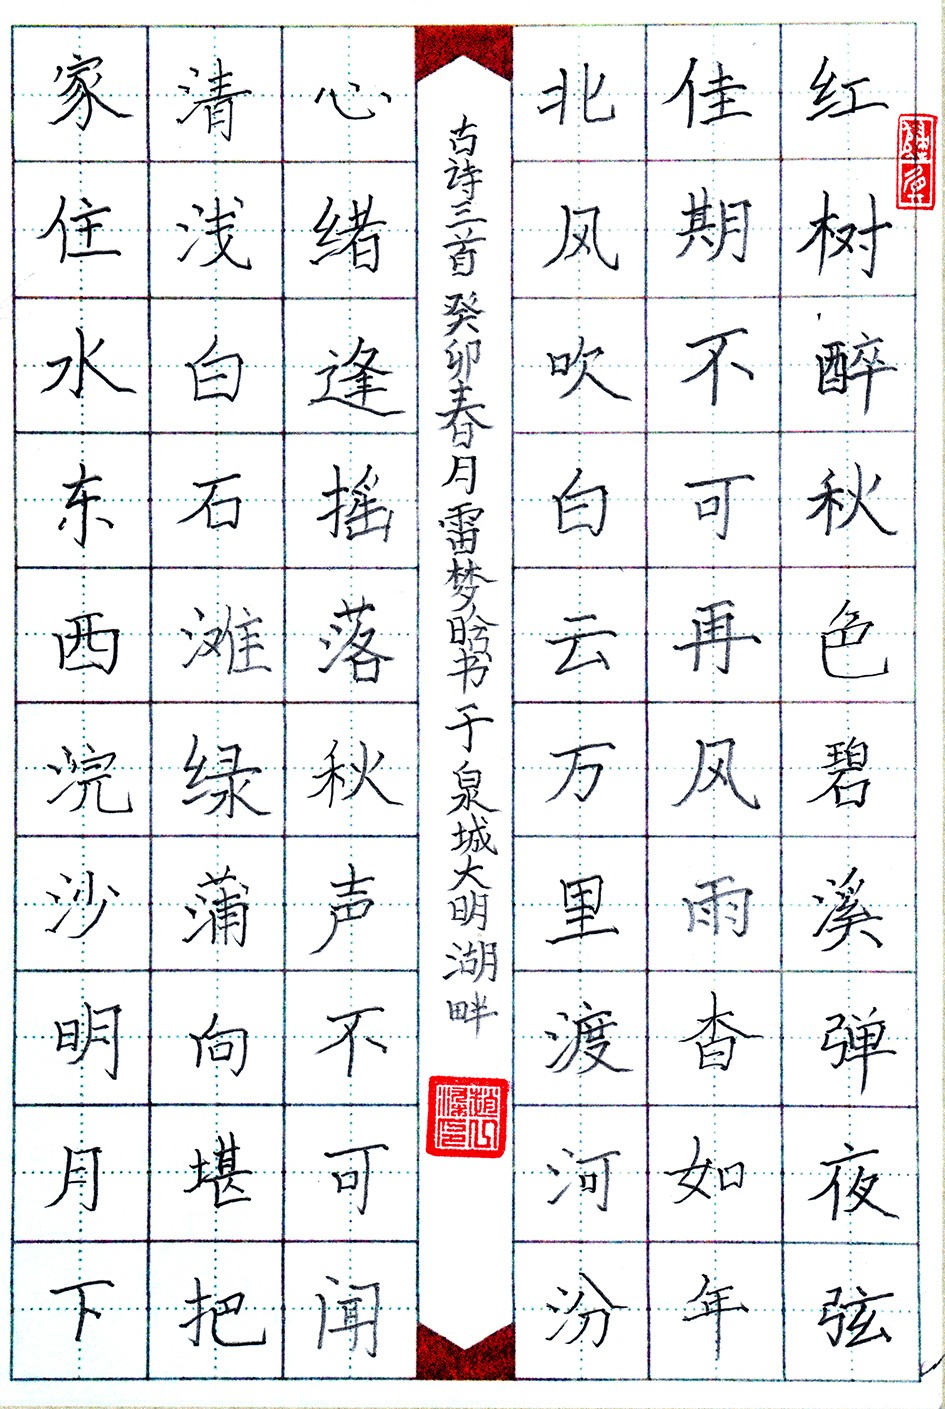 红树醉秋色碧溪弹夜弦
佳期不可再风雨杳如年
北风吹白云万里渡河汾
古诗三首 癸卯春月雷梦晗书于泉城大明湖畔
心绪逢摇落秋声不可闻
清浅白石滩绿蒲向堪把
家住水东西浣沙明月下